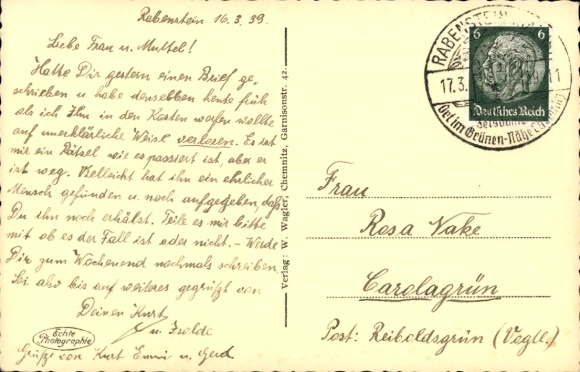 Rabenstein 16.3.39.
Liebe Frau u. Muttel!
Hatte Dir gestern einen Brief ge-
schrieben u. habe denselben heute früh
als ich Ihn in den Kasten werfen wollte
auf unerklärliche Weise verloren. Es ist
mir ein Rätsel wie es passiert ist, aber er
ist weg. Vielleicht hat ihn ein ehrlicher
Mensch gefunden u. noch aufgegeben, daß
Du ihn noch erhälst. Teile es mir bitte
mit ob es der Fall ist oder nicht. - Werde
Dir zum Wochenend nochmals schreiben.
Sei also bis auf weiteres gegrüßt von
Deinen Kurt
u. Isolde
Grüße von Kurt Emmi u. Gerd
Echte
Photographie
Verlag: W. Wagler, Chemnitz, Garnisonstr. 42.
RABENSTEIN
17.3.
6 6
Deutsches Reich
del im Grünen-Nähe
Frau
Rosa Nake
Carolagrün
Post: Reiboldsgrün (Vogtl.)